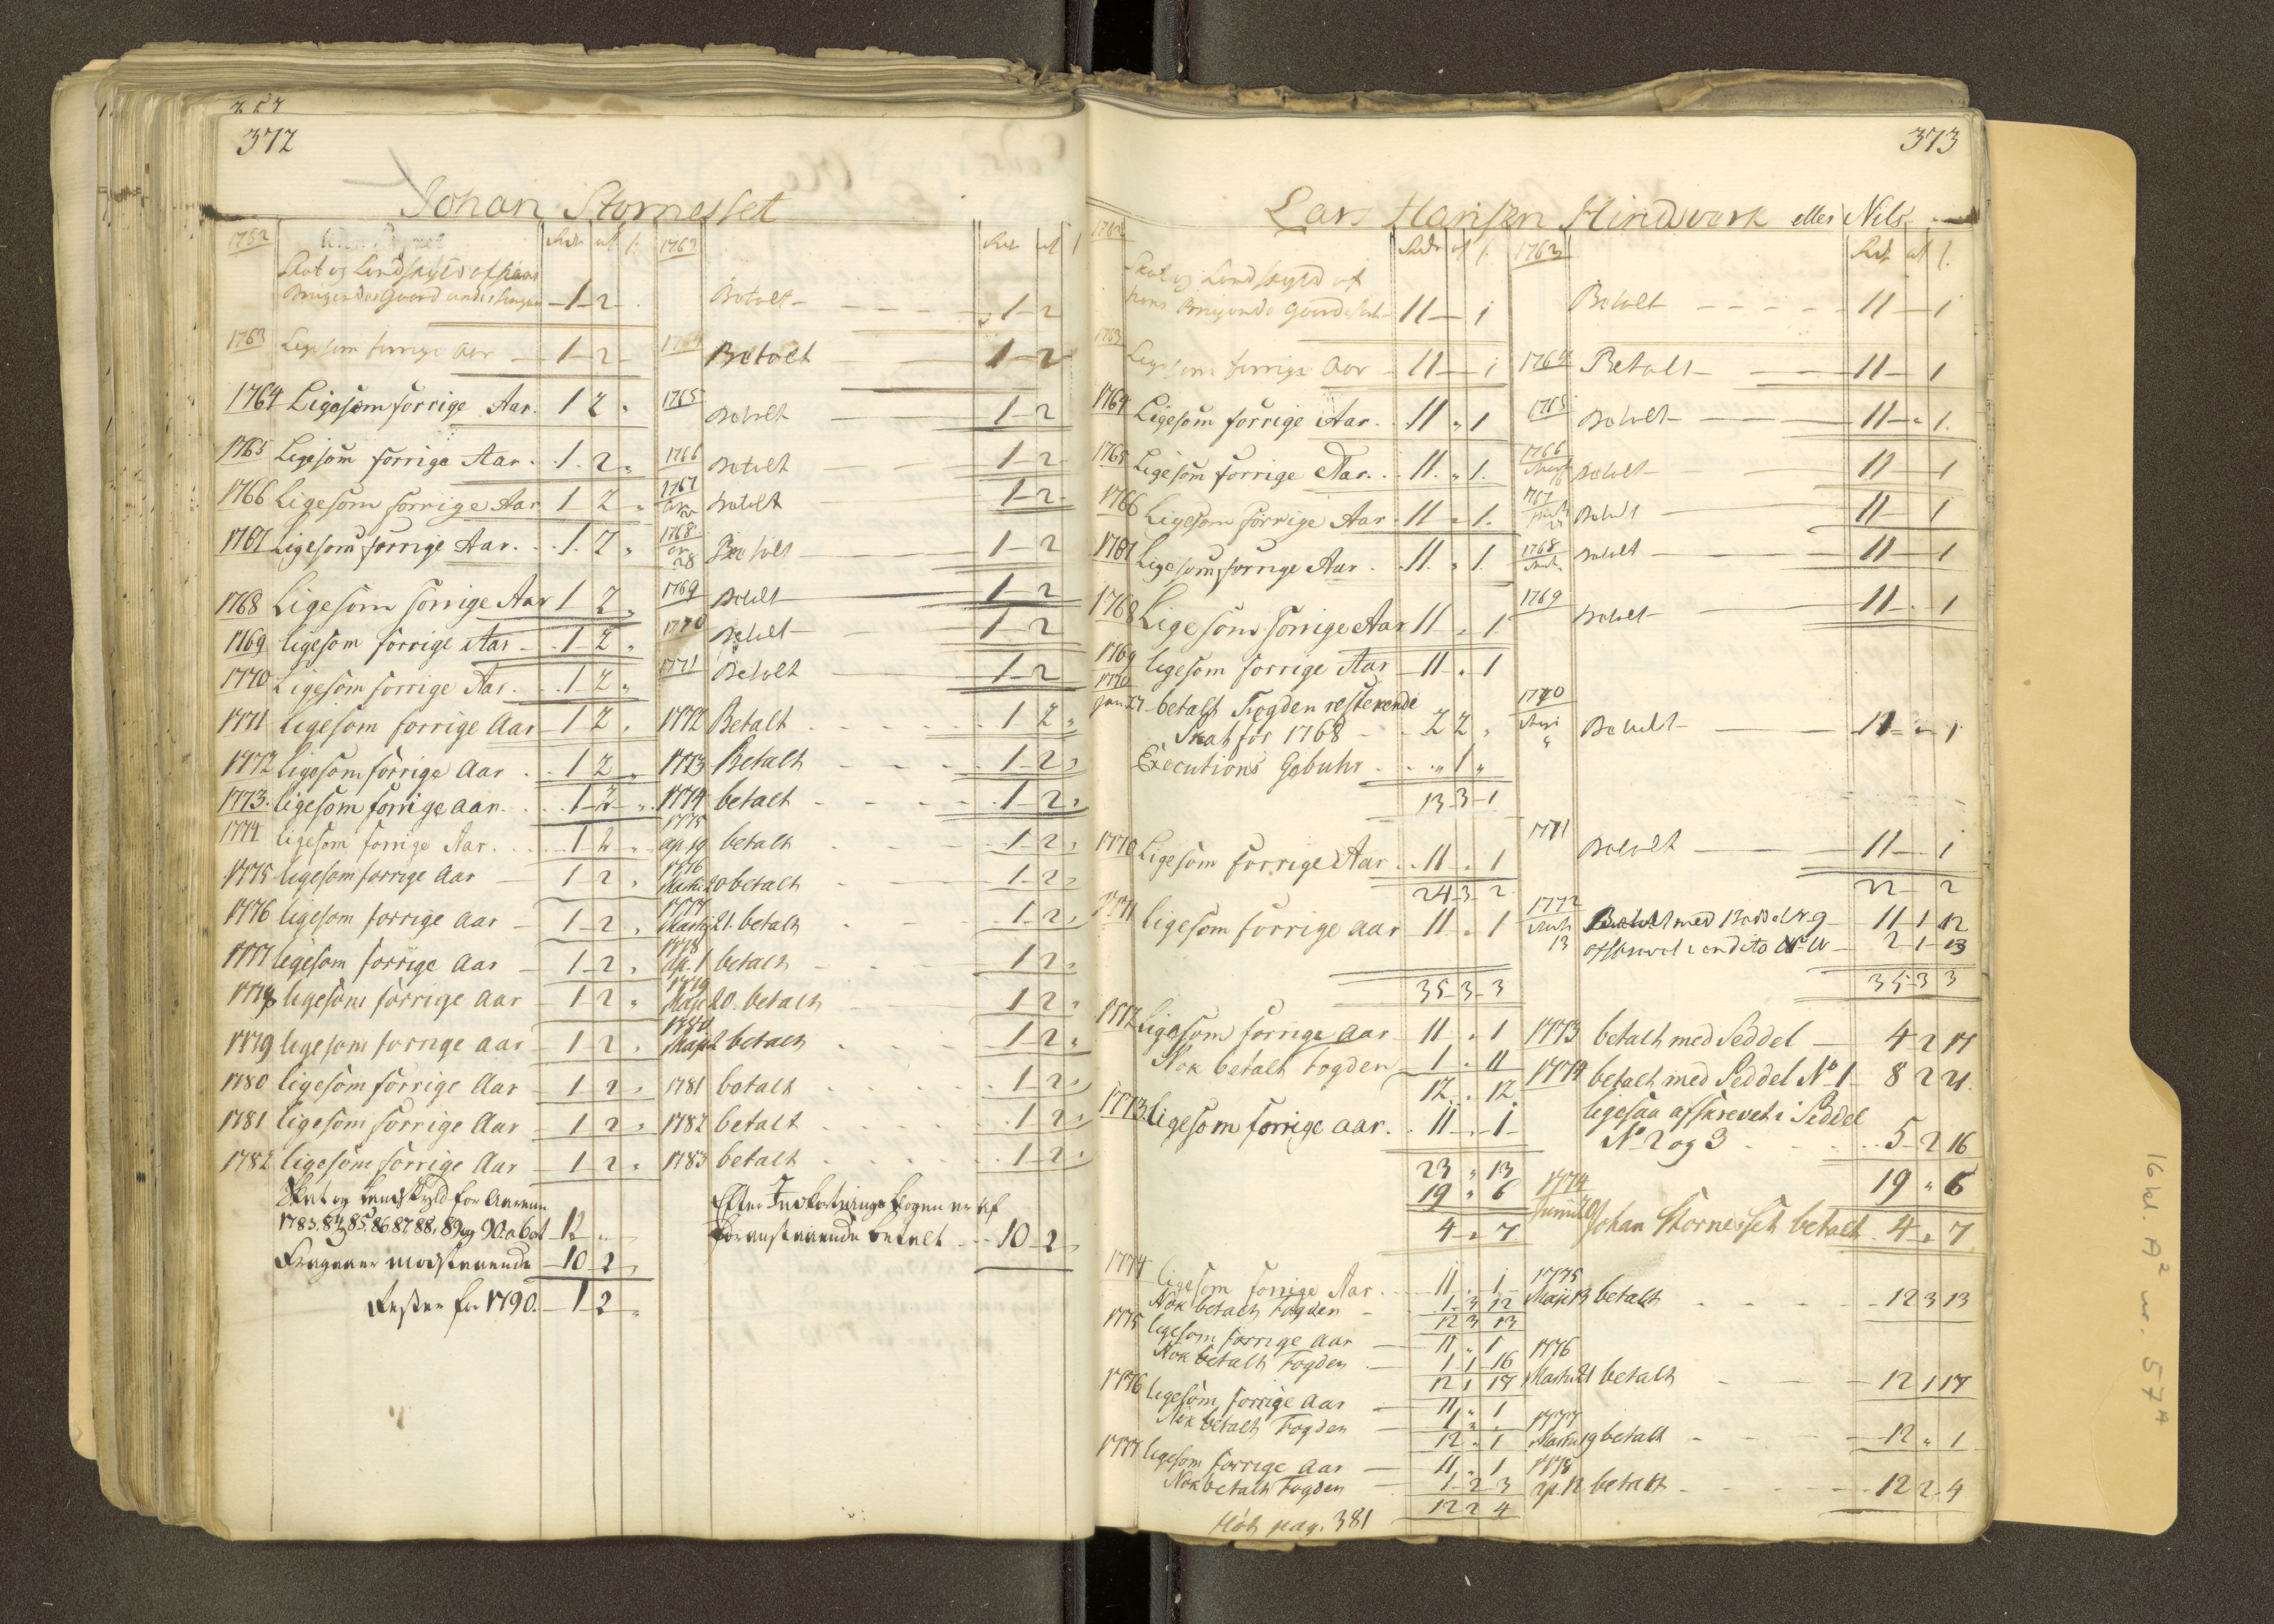 372
Johan Stornesset
1762 Rdr ort s.
Skat og Landskyld af hans
Brugende Gaard 1 - 2 -
1763 Ligesom forrige Aar - 1 - 2 -
1764 Ligesom forrige Aar. 1 2 "
1765 Ligesom forrige Aar. 1. 2 "
1766 Ligesom forrige Aar 1 2 "
1767 Ligesom forrige Aar. 1. 2 "
1768 Ligesom forrige Aar 1 2 "
1769 ligesom forrige Aar - 1 - 2 "
1770 Ligesom forrige Aar. 1 - 2 "
1771 ligesom forrige Aar - 1 2 "
1772 ligesom forrige Aar . 1 2 "
1773. ligesom forrige aar. 1 - 2 - "
1774 ligesom forrige Aar. 1 2 "
1775 ligesom forrige Aar - 1 2 "
1776 ligesom forrige aar - 1 - 2 "
1777 ligesom forrige aar - 1 - 2 "
1778 ligesom forrige aar - 1 - 2 "
1779 ligesom forrige aar - 1 - 2 "
1780 ligesom forrige Aar - 1 - 2 "
1781 ligesom forrige Aar - 1 2 "
1782 ligesom forrige Aar - 1 - 2 "
Skat og Landskyld for Aarene
1783. 84, 85, 86 87 88, 89 og 90. a 6 ort 12 " "
Fragaaer modstaaende - 10 - 2 "
Rester for 1790. - 1 - 2 "
1763 Rdr ort s
Betalt - 1 - 2
1764 Betalt 1 - 2
1765 Betalt 1 - 2
1766 Betalt 1 - 2
1767 Betalt 1 - 2
1768 28 Betalt 1 - 2
1769 Betalt 1 - 2
1770 Betalt 1 - 2
1771 Betalt 1 - 2
1772 Betalt 1 2 "
1773 Betalt 1 - 2 "
1774 betalt 1 - 2 "
1775 ap. 19 betalt 1 - 2 "
1776 Martii 20 betalt 1 - 2 "
1777 Martij 21. betalt 1 - 2 "
1778 ap. 1 betalt 1 - 2 "
1779 Maji 20. betalt 1 2 "
1780 Maji 2 betalt 1 - 2 "
1781 betalt 1 - 2 "
1782 betalt 1 - 2 "
1783 betalt 1 - 2 "
Efter Indkortnings bogen er af
foranstaaende betalt - 10 - 2 "
373
Lars Hansen Hindverk eller Nils
1762 Rdr ort s.
Skat og Landskyld af
hans Brugende Gaard 11 - 1
1763 Ligesom forrige Aar - 11 - 1
1764 Ligesom forrige Aar. 11 " 1
1765 Ligesom forrige Aar. 11. " 1.
1766 Ligesom forrige Aar 11 " 1.
1767 Ligesom forrige Aar. 11. " 1
1768 Ligesom forrige Aar 11 " 1
1769 ligesom forrige Aar - 11 " 1
1770 jan. 27 betalt Fogden resterende
Skat for 1768 - 2 2 "
Executions Gebuhr . " 1 "
13 - 3 - 1
1770 Ligesom forrige Aar . 11 " 1
24 - 3 - 2
1771 ligesom forrige aar 11 " 1
35 - 3 - 3
1772 ligesom forrige aar 11 " 1
Nok betalt Fogden 1 " 11
12 " 12
1773 ligesom forrige aar. 11 " 1
23 " 13
19 " 6
4 " 7
1774 ligesom forrige Aar. 11 " 1
Nok betalt Fogden - 1 - 3 12
12 3 13
1775 ligesom forrige aar - 11 " 1
Nok betalt Fogden - 1 1 16
12 1 17
1776 ligesom forrige aar - 11 " 1
Nok betalt Fogden - 1 " "
12 " 1
1777 ligesom forrige aar - 11 " 1
Nok betalt Fogden - 1 - 2 3
12 2 4
pag. 381
1763 Rdr ort s.
Betalt - 11 - 1
1764 Betalt - 11 - 1
1765 Betalt - 11 - " 1.
1766 Betalt - 11 - 1
1767 Betalt 11 - 1
1768 Betalt - 11 - 1
1769 Betalt - 11 - 1
1770 Betalt - 11 - " - 1
1771 Betalt - 11 - 1
22 - 2
1772 13 Betalt med 9 - 11 - 1 12
2 - 1 - 13
35 - 3 3
1773 betalt med Seddel - 4 2 17
1774 betalt med Seddel No 1 - 8 2 21.
ligesaa afskrevet i Seddel
No 2 og 3 5 - 2 16
19 " 6
1774 Johan Stornesset betalt 4 " 7
1775 Maji 13 betalt 12 3 13
1776 Martii 21 betalt 12 1 17
1777 Martii 19 betalt 12 " 1
1778 ap. 12 betalt 12 2 4
16 kl. A² nr. 57ᴬ